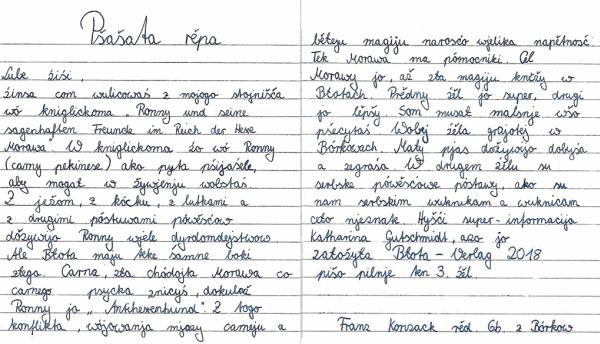 Pśašata rěpa
Lube źiśi,
źinsa com wulicowaś z mojogo stojnišća
wó knigłickoma „Ronny und seine
sagenhaften Freunde im Reich der Hexe
Morawa". W knigłickoma źo wó Ronny
(camy pekinese) ako pyta pśijaśele,
aby mogał w žywjenju wobstaś.
Z ježom, z kócku, z lutkami a
z drugimi póstawami pówěsćow
dožywjo Ronny wjele dyrdomdejstwow.
Ale Błota maju teke samne boki
złego. Carna, zła chódojta Morawa co
carnego psycka znicyś, dokulaž
Ronny jo „Antihexenhund". Z togo
konflikta, wójowanja mjazy carneju a
běłeju magiju narosćo wjelika napětnosć.
Teke Morawa ma pómocniki. Cil
Morawy jo, až zła magija kněžy w
Błotach. Prědny źěl jo super, drugi
jo lěpšy. Som musał malsnje wšo
pśecytaś. Wobej źěla grajotej w
Bórkowach. Mały pjas dožywjo dobyśa
a zegraśa. W drugem źělu su
serbske pówěsćowe póstawy, ako su
nam serbskim wuknikam a wuknicam
cełо njeznate. Hyšći super-informacija
Katharina Gutschmidt, ako jo
założyła Błota-Verlag 2018
pišo pilnje ten 3. źěl.
Franz Konzack rěd. 6b. z Bórkow